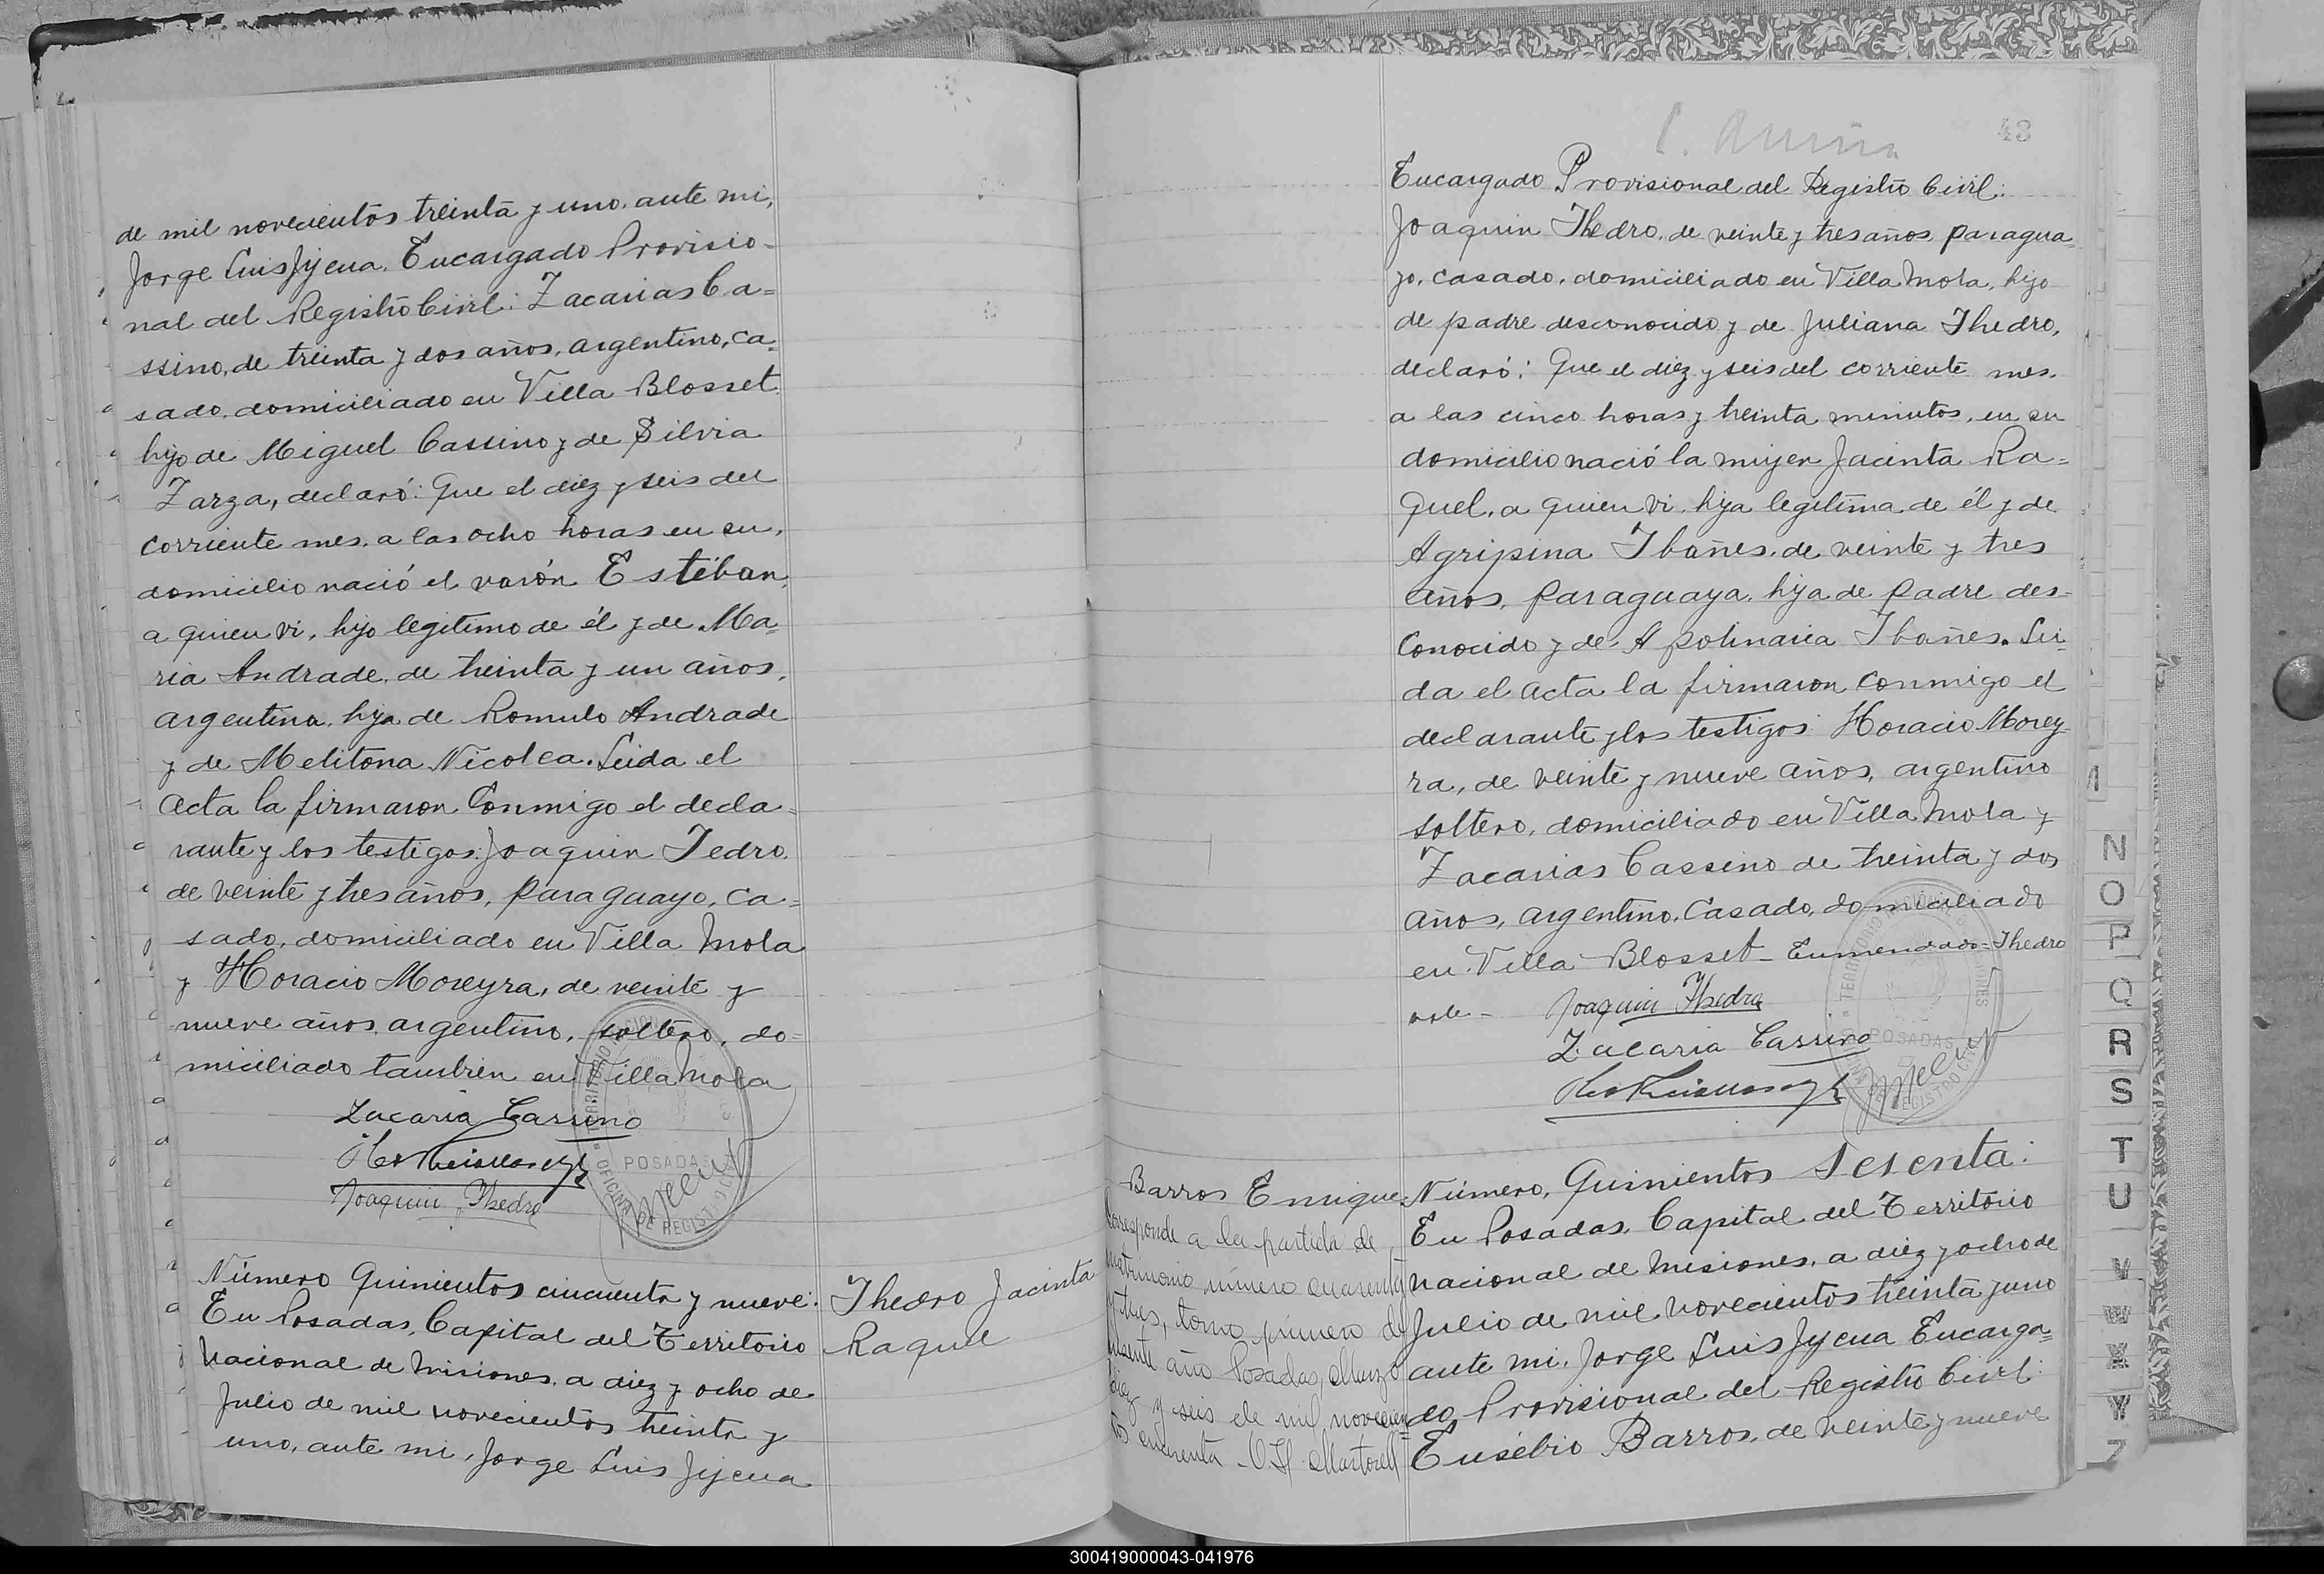 de mil novecientos treinta y uno, ante mi,
Jorge Luis Jijena, Encargado Provisio=
nal del Registro Civil: Zacarias Ca=
ssino, de treinta y dos años, argentino, ca=
sado, domiciliado en Villa Blosset.
hijo de Miguel Cassino y de Silvia
Zarza, declaró: Que el diez y seis del
corriente mes, a las ocho horas en su,
domicilio nació el varón Estéban,
a quien vi, hijo legitimo de él y de Ma=
ria Andrade, de treinta y un años,
argentina, hija de Romulo Andrade
y de Melitona Nicolea. Leida el
acta la firmaron Conmigo el decla=
rante y los testigos: Joaquin Tedro.
de veinte y tres años, paraguayo, ca=
sado, domiciliado en Villa Mola
y Horacio Moreyra, de veinte y
nueve años, argentino, soltero, do=
miciliado también en Villa Mola
Zacaria Cassino
Joaquin Thedro
POSADAS
OFICINA DE REGISTRO CIVIL
Número Quinientos cincuenta y nueve:
En Posadas, Capital del Territorio
Nacional de Misiones, a diez y ocho de
Julio de mil novecientos treinta y
uno, ante mi, Jorge Luis Jijena
Thedro Jacinta
Raquel
43
Encargado Provisional del Registro Civil:
Joaquin Thedro, de veinte y tres años, paragua
yo, casado, domiciliado en Villa Mola, hijo
de padre desconocido y de Juliana Thedro,
declaró: Que el diez y seis del corriente mes.
a las cinco horas y treinta minutos, en su
domicilio nació la mujer Jacinta Ra=
quel, a quien vi, hija legitima de él y de
Agripina Ibañes, de veinte y tres
años, paraguaya, hija de padre des=
conocido y de Apolinaria Ibañes. Lei=
da el acta la firmaron conmigo el
declarante y los testigos: Horacio Morey
ra, de veinte y nueve años, argentino
soltero, domiciliado en Villa Mola y
Zacarias Cassino de treinta y dos
años, argentino, Casado, domiciliado
en Villa Blosset - Enmendado=Thedro
vale -
Joaquin Thedro
Zacaria Cassino
POSADAS
Barros Enrique
Corresponde a la partida de
matrimonio número cuarenta
y tres, tomo primero del
presente año Posadas, Marzo
diez y seis de mil novecien=
tos cincuenta - Martorell
Número, Quinientos Sesenta:
En Posadas, Capital del Territorio
Nacional de Misiones, a diez y ocho de
Julio de mil novecientos treinta y uno
ante mi, Jorge Luis Jijena Encarga=
do Provisional del Registro Civil:
Eusebio Barros, de veinte y nueve
N
O
P
Q
R
S
T
U
V
W
X
Y
Z
300419000043-041976